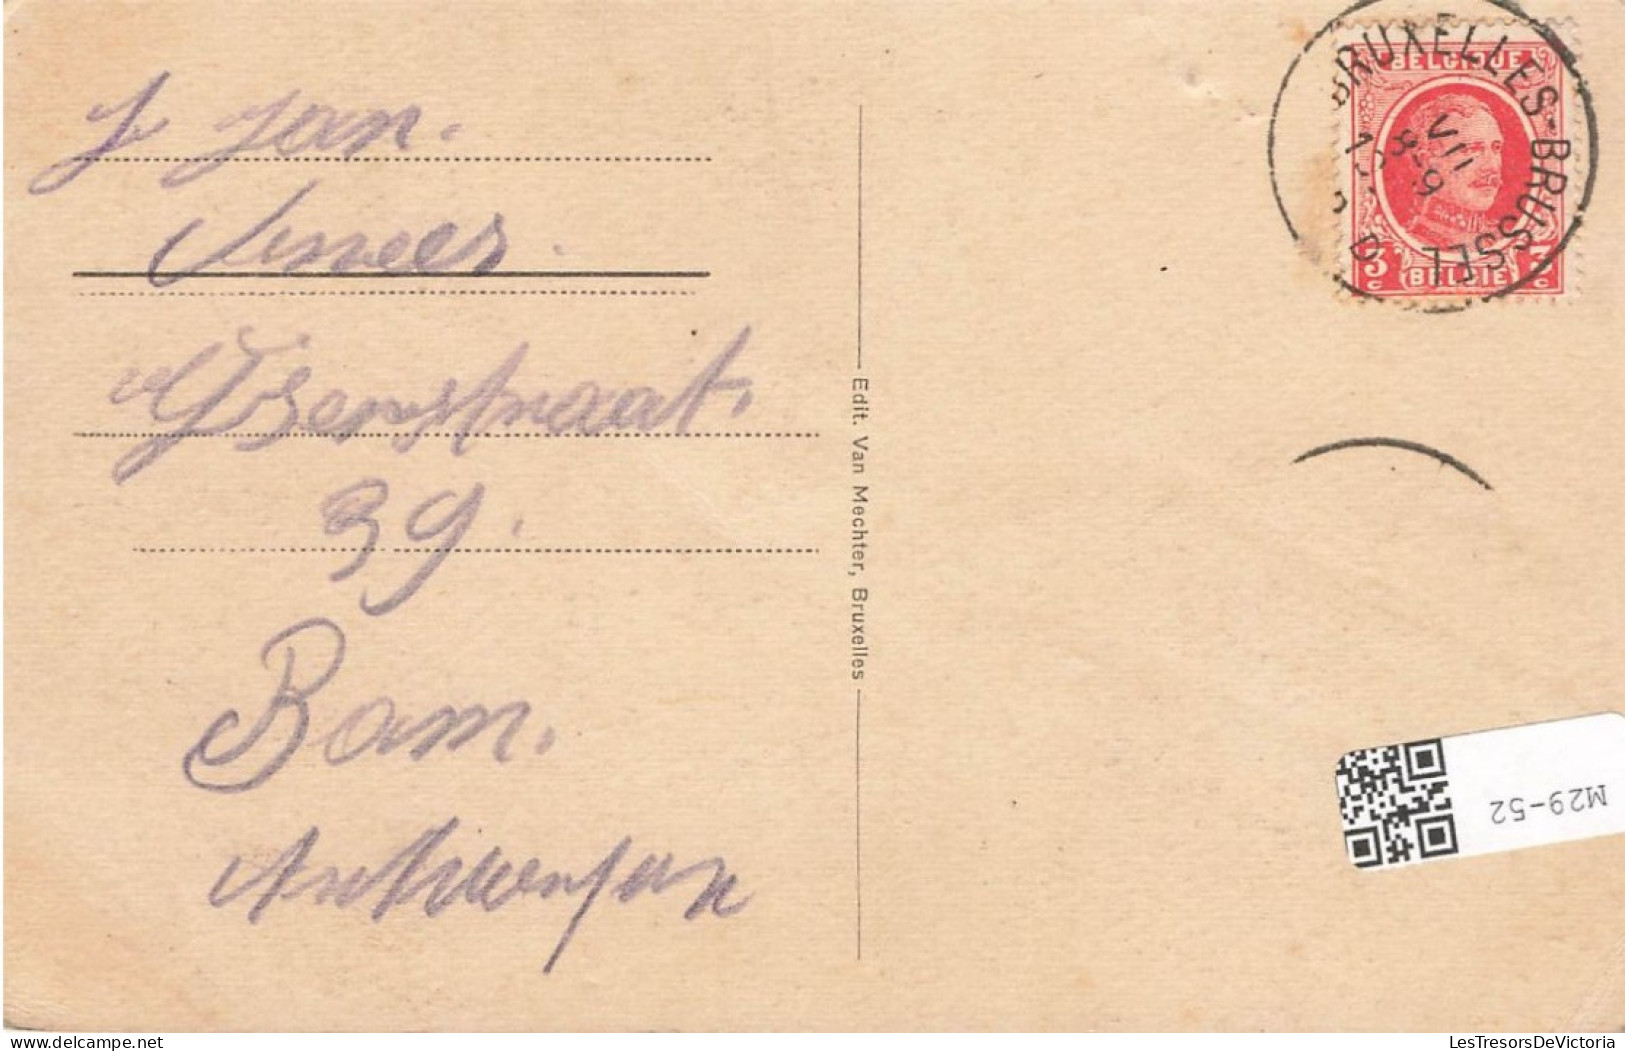 J Jan.
Smees.
Yserstraat.
39.
Bom.
Antwerpen
Edit. Van Mechter, Bruxelles
BRUXELLES-BRUSSEL
VII
8-9
BELGIQUE
3c 3c
BELGIE
M29-52
LesTresorsDeVictoria
delcampe.net